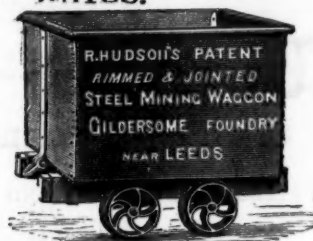 R.HUDSON'S PATENT
RIMMED & JOINTED
STEEL MINING WAGGON
GILDERSOME FOUNDRY
NEAR LEEDS